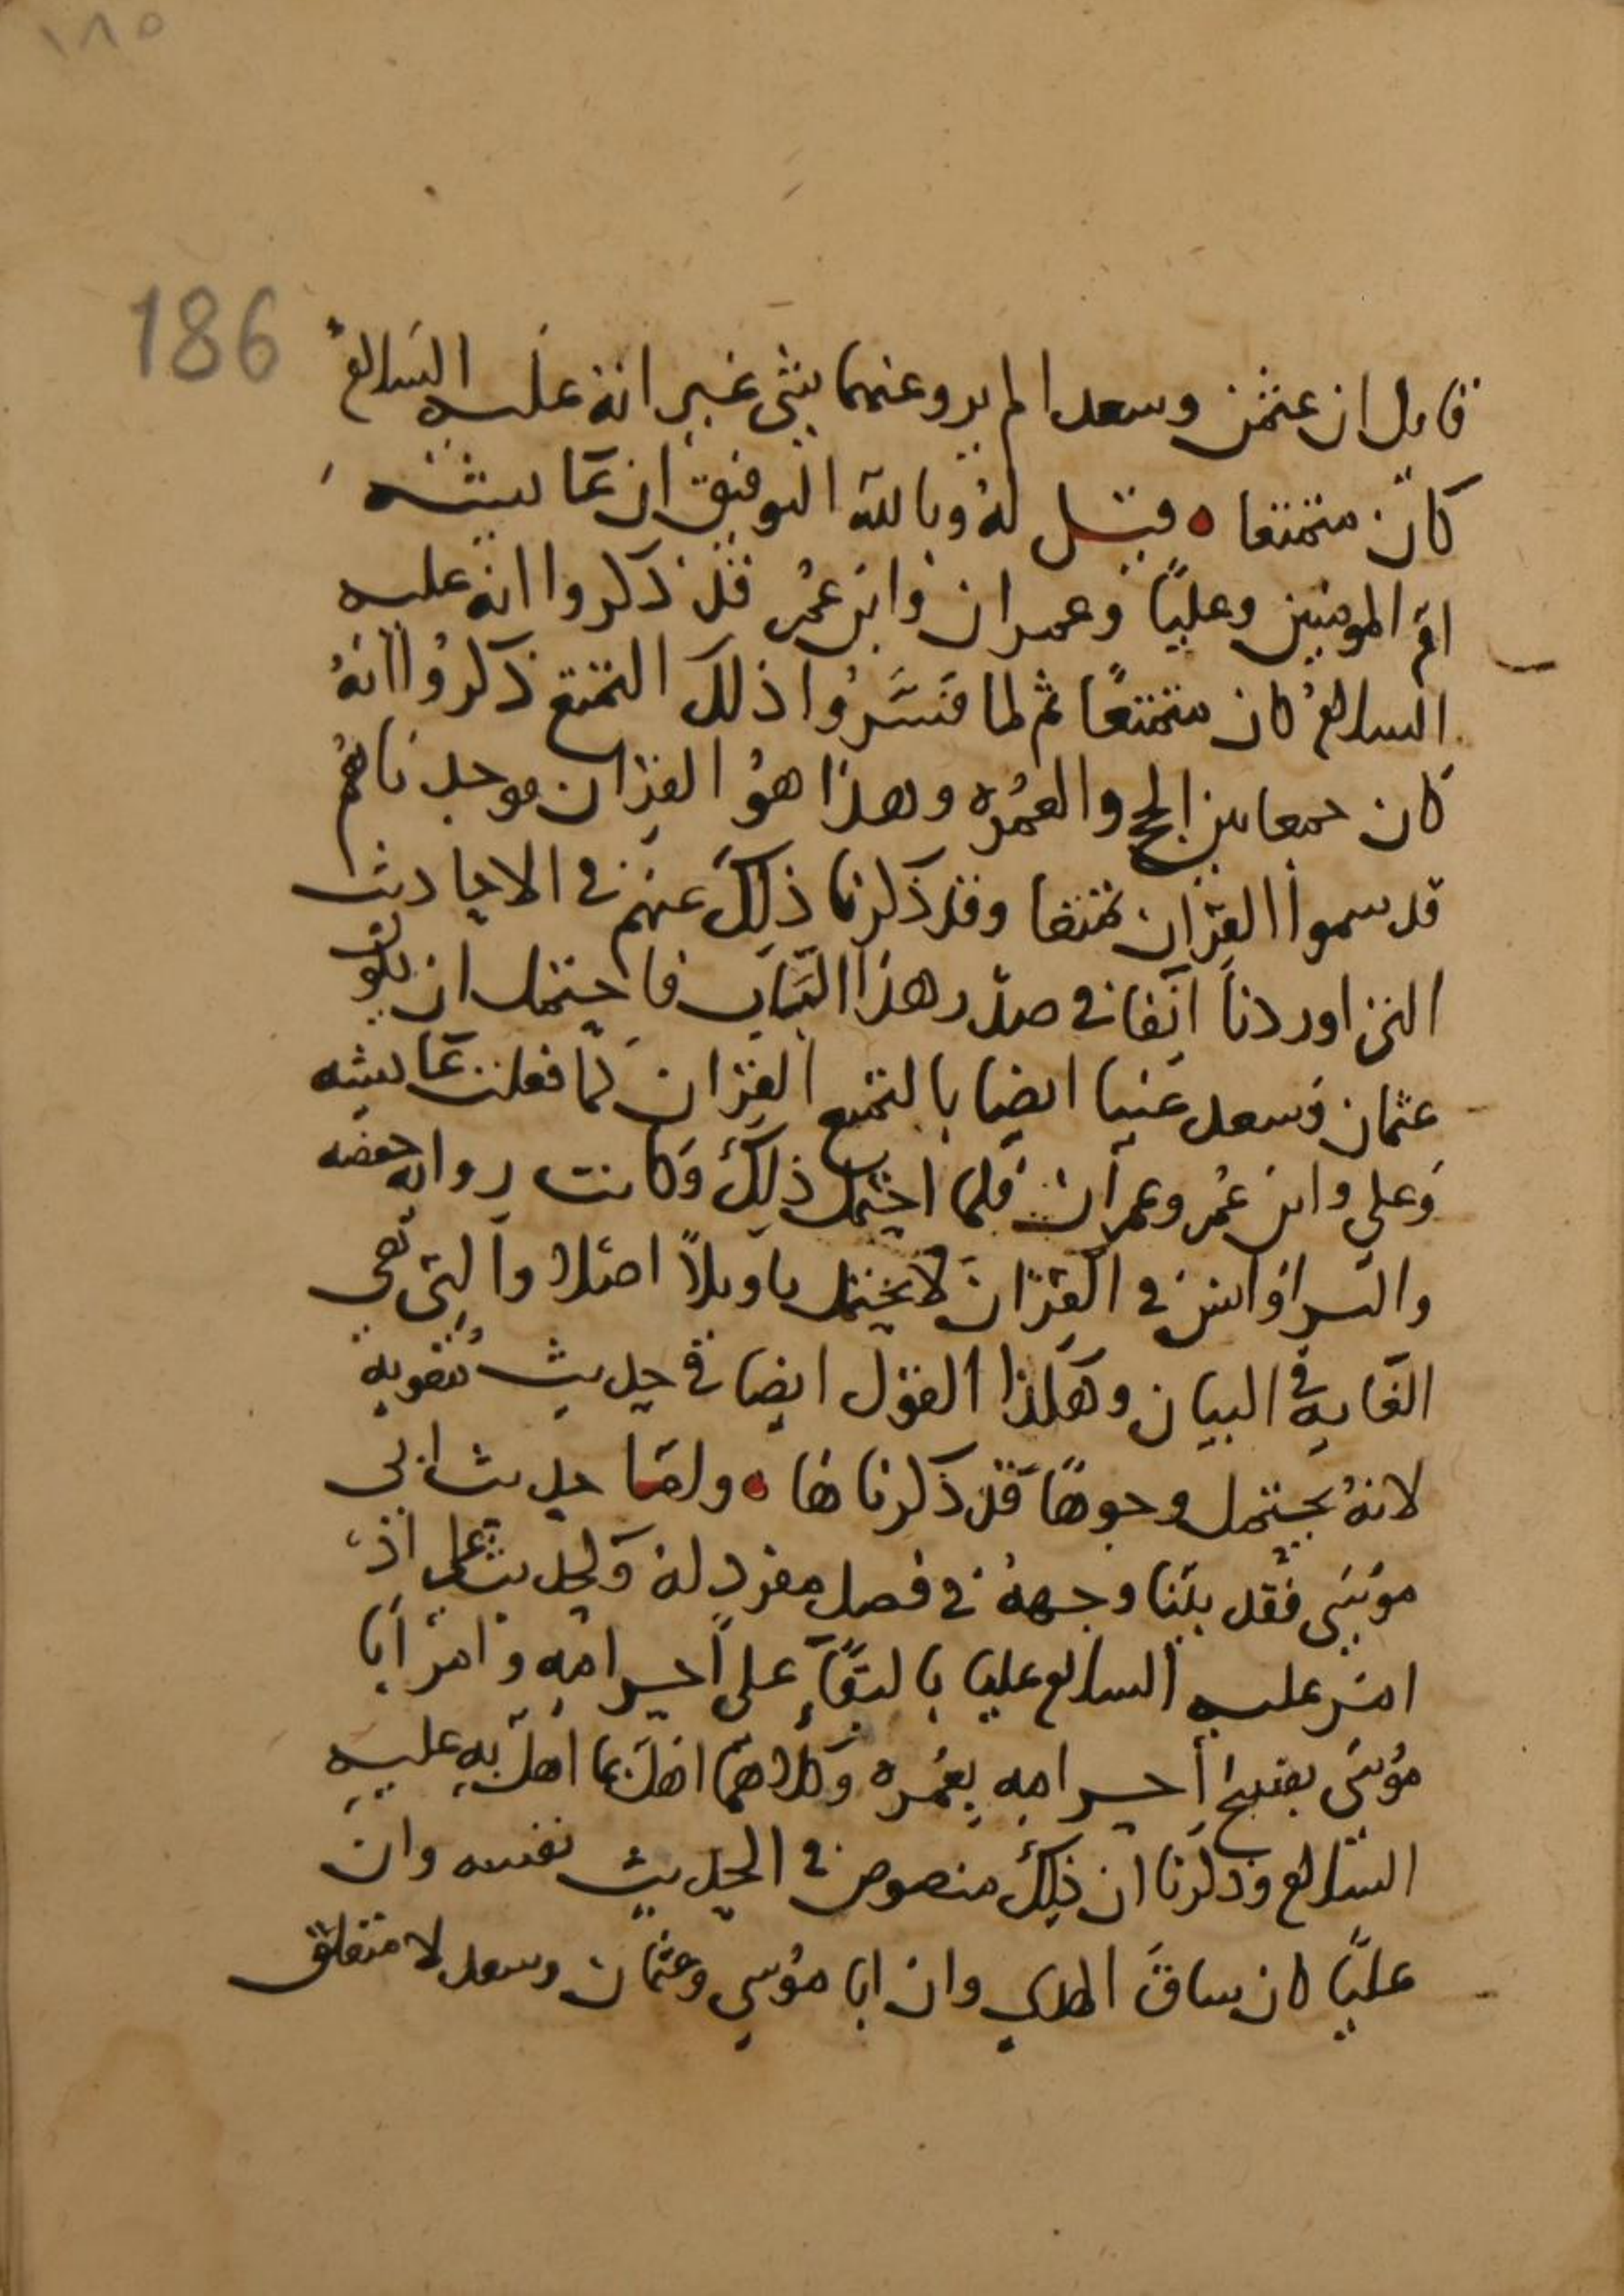 ١٨٥
186
قايل ان عثمن وسعدا لم يرو عنهما شي غير انه عليه السلام
كان متمتعا ه فيقيل له وبالله التوفيق ان عايشه
ام المومنين وعليًا وعمران وابن عمر قد ذكروا انه عليه
السلام كان متمتعًا ثم لما فسَّرُوا ذلك التمتع ذكروا انهُ
كان جمعا بين الحج والعمُره وهذا هوُ القران فوجدناهُم
قد سموا القران تمتعا وقد ذكرنا ذلك عنهم في الاحاديث
التي اوردنا انفا في صدر هذا الباب فاحتمل ان يكون
عثمان وسعد عنيا ايضا بالتمتع القران كما فعلت عايشه
وعلي وابن عمُر وعمران فلما احتمل ذلك وكانت روايه حفصه
والبراوانس في القران لا يحتمل تاويلاً اصلا والتي هي
الغايه في البيان وهكذا القول ايضا في حديث معويه
لانهُ يحتمل وجوهًا قد ذكرناها ه واما حديث ابي
موسَى فقد بينا وجههُ في فصل مفرد له ولحديث علي اذ
امر عليه السلام عليا بالبقآءِ على احرامهِ وامر ابا
مُوسَى بفسخ احرامه بعمُره وكلاهما اهل بما اهل بهِ عليه
السلام وذكرنا ان ذلك منصوص في الحديث نفسه وان
عليًا كان ساق الهدي وان ابا مُوسي وعثمان وسعد لا متعلق